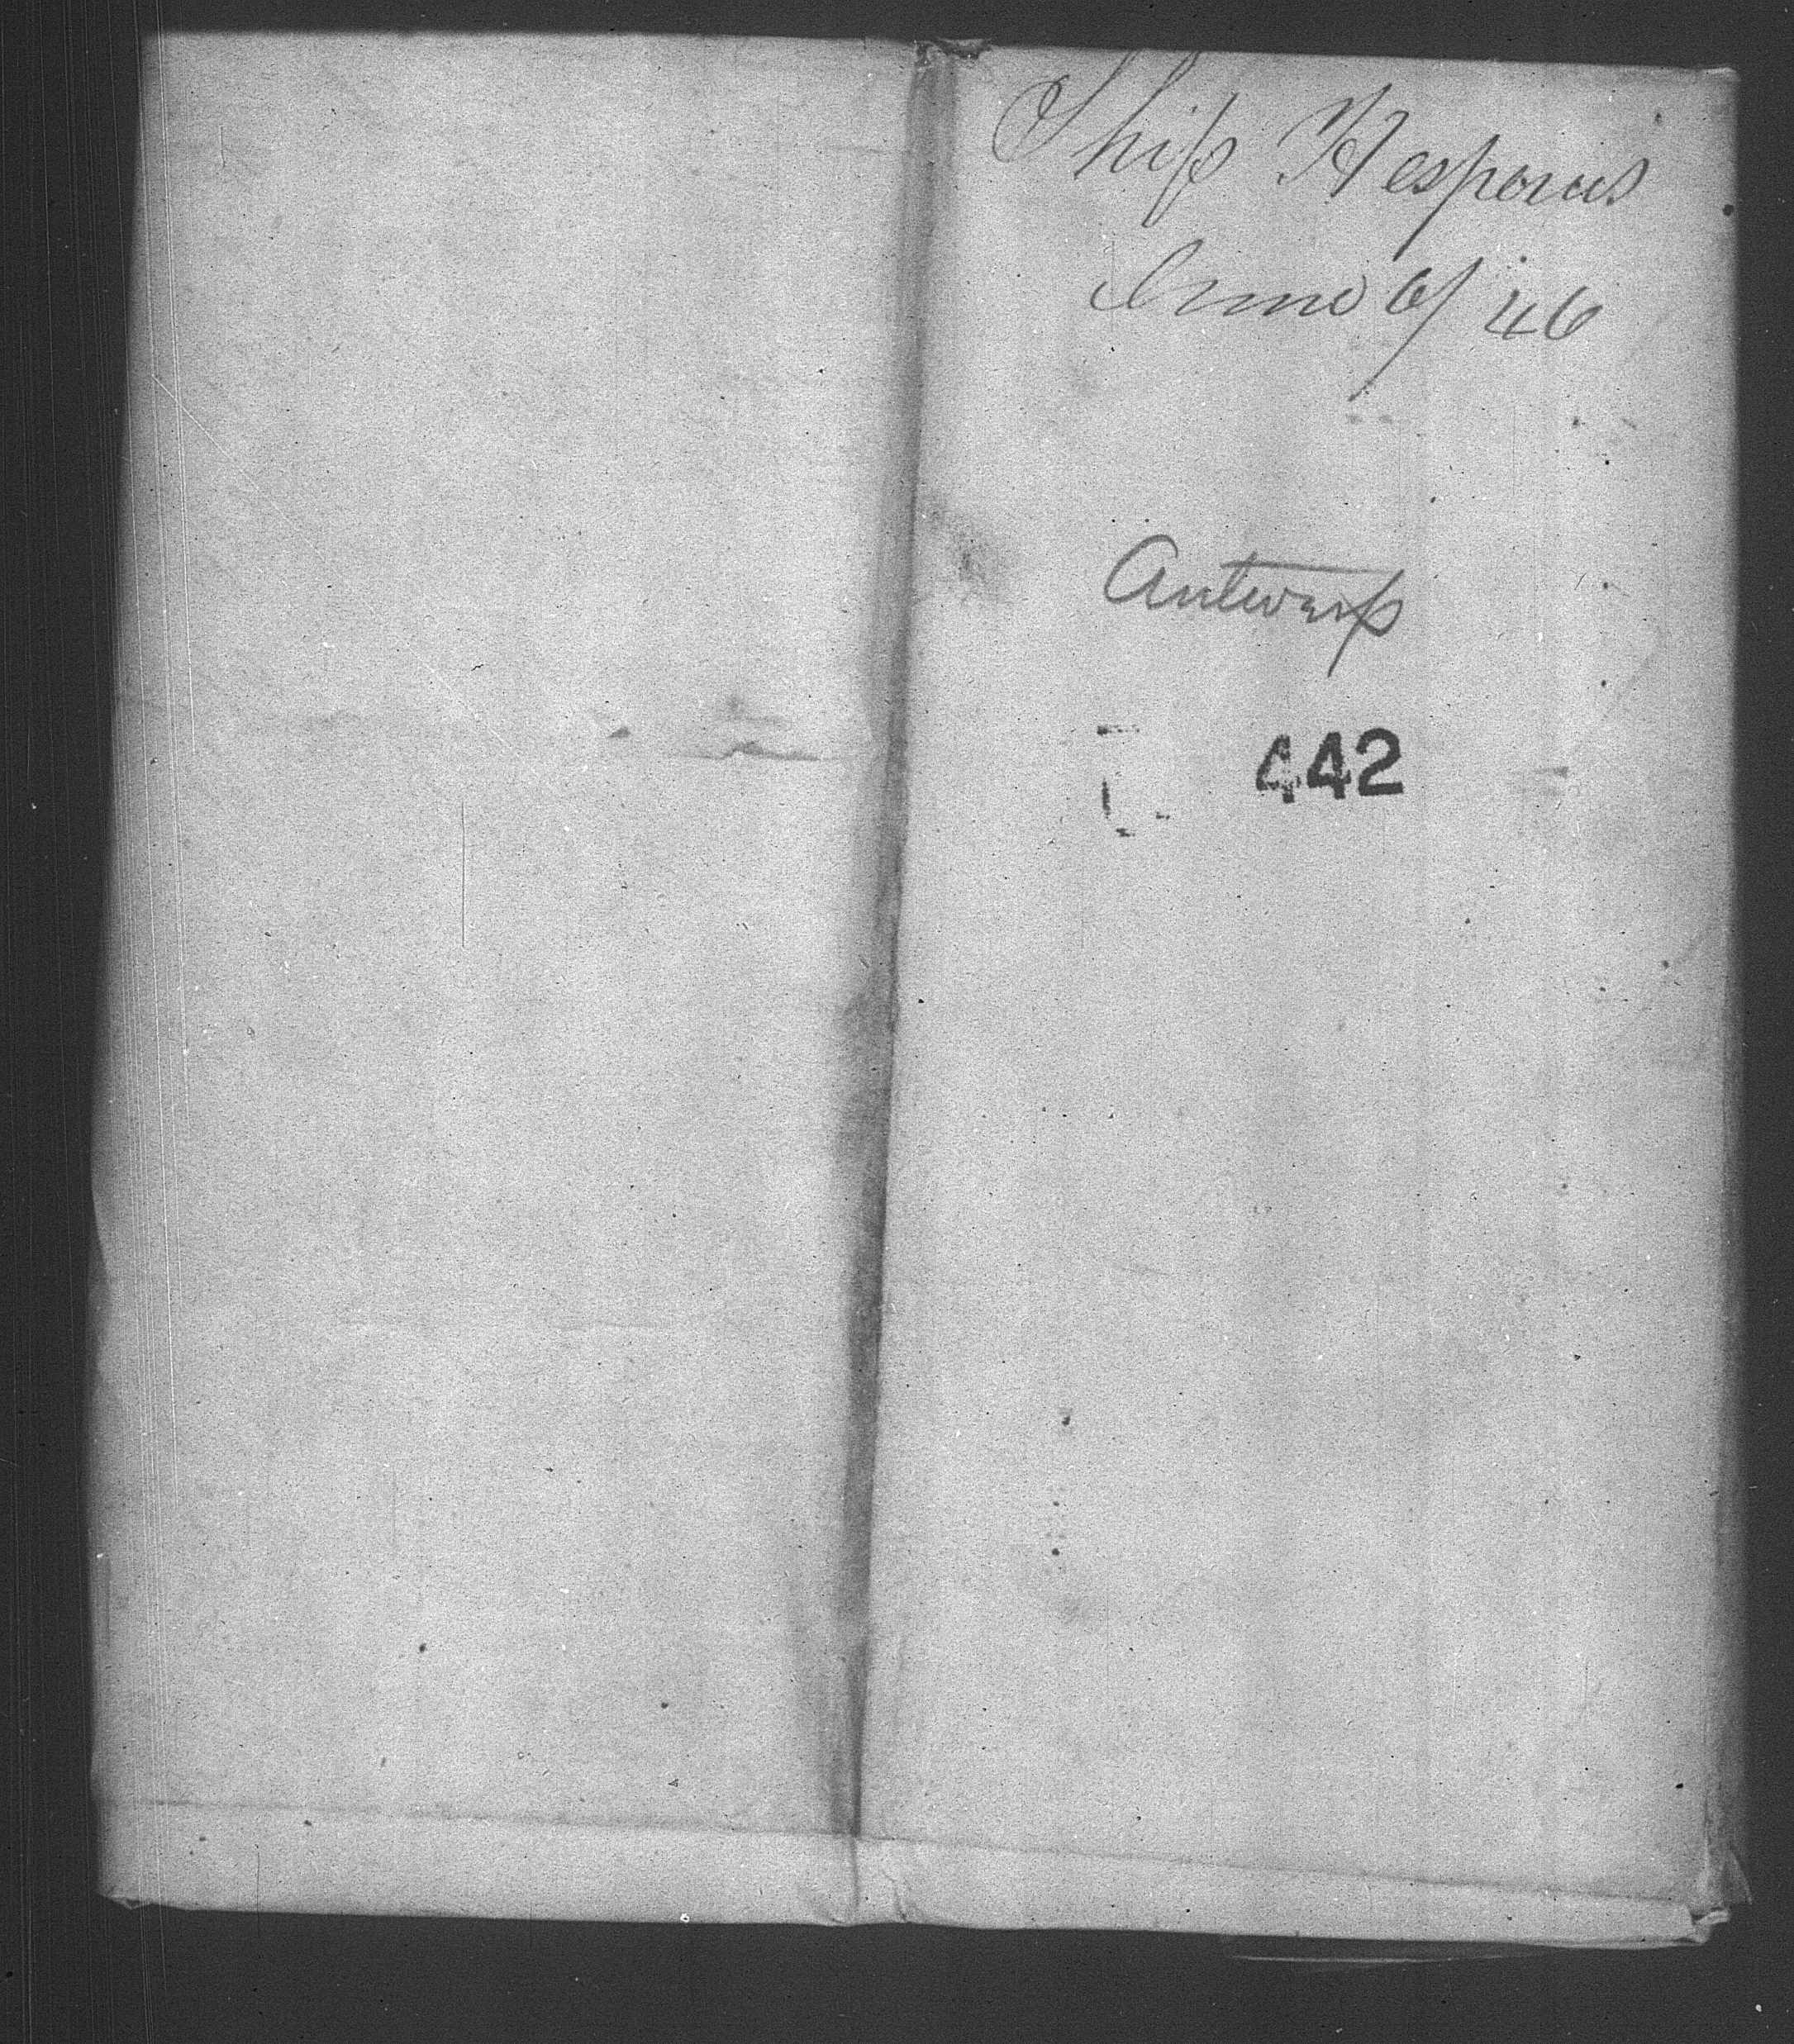 Ship Hesperus
June 6/46
Antwerp
442